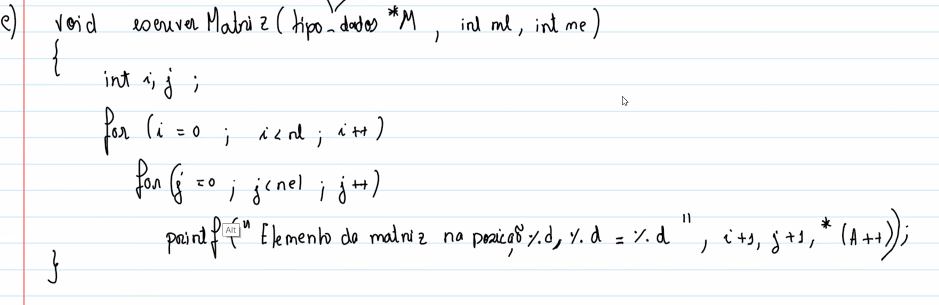 e) void escrever Matriz (tipo_dados *M , int nl, int nc)
{
int i, j ;
for (i = 0 ; i < nl ; i++)
for (j = 0 ; j < nc ; j++)
printf ( Alt " Elemento da matriz na posição %d, %d = %d " , i+1, j+1, * (A++));
}